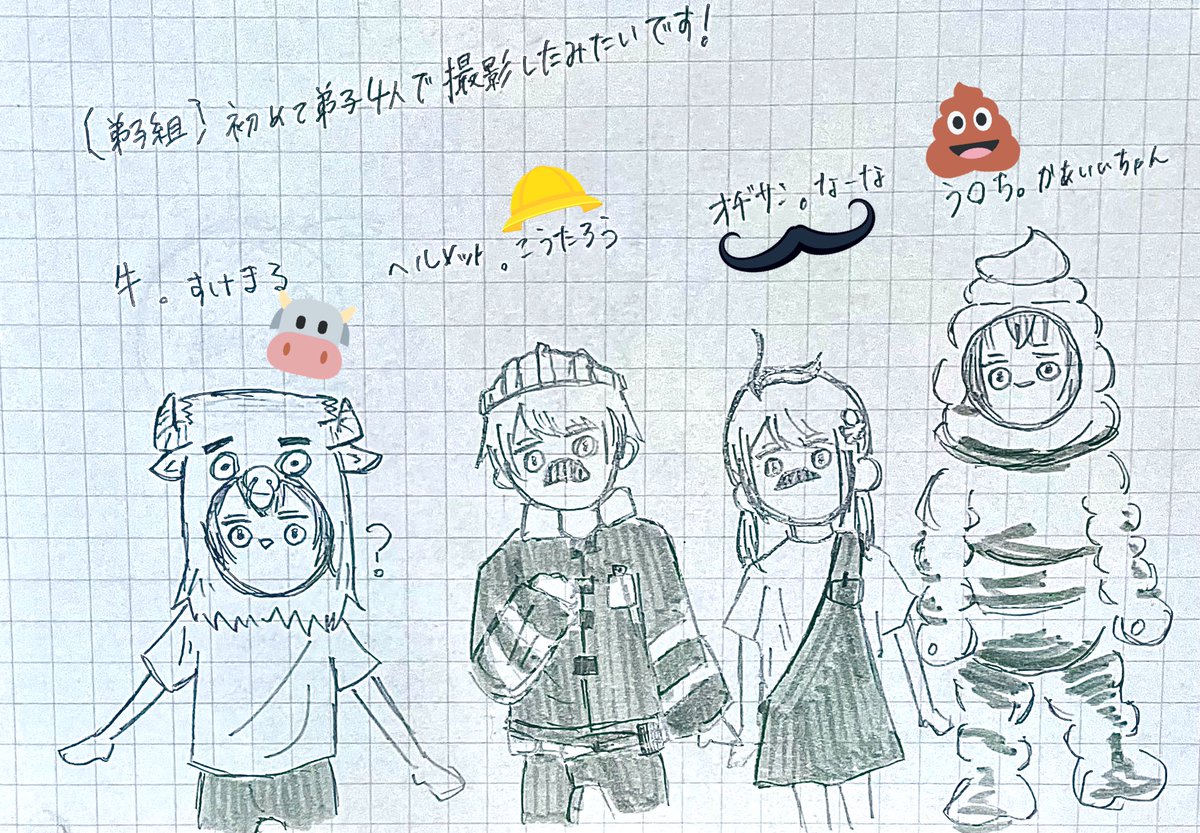 〔弟子組〕初めて弟子4人で撮影したみたいです!
う〇ち。かあいいちゃん
オヂサン。なーな
ヘルメット。こうたろう
牛。すけまる
?